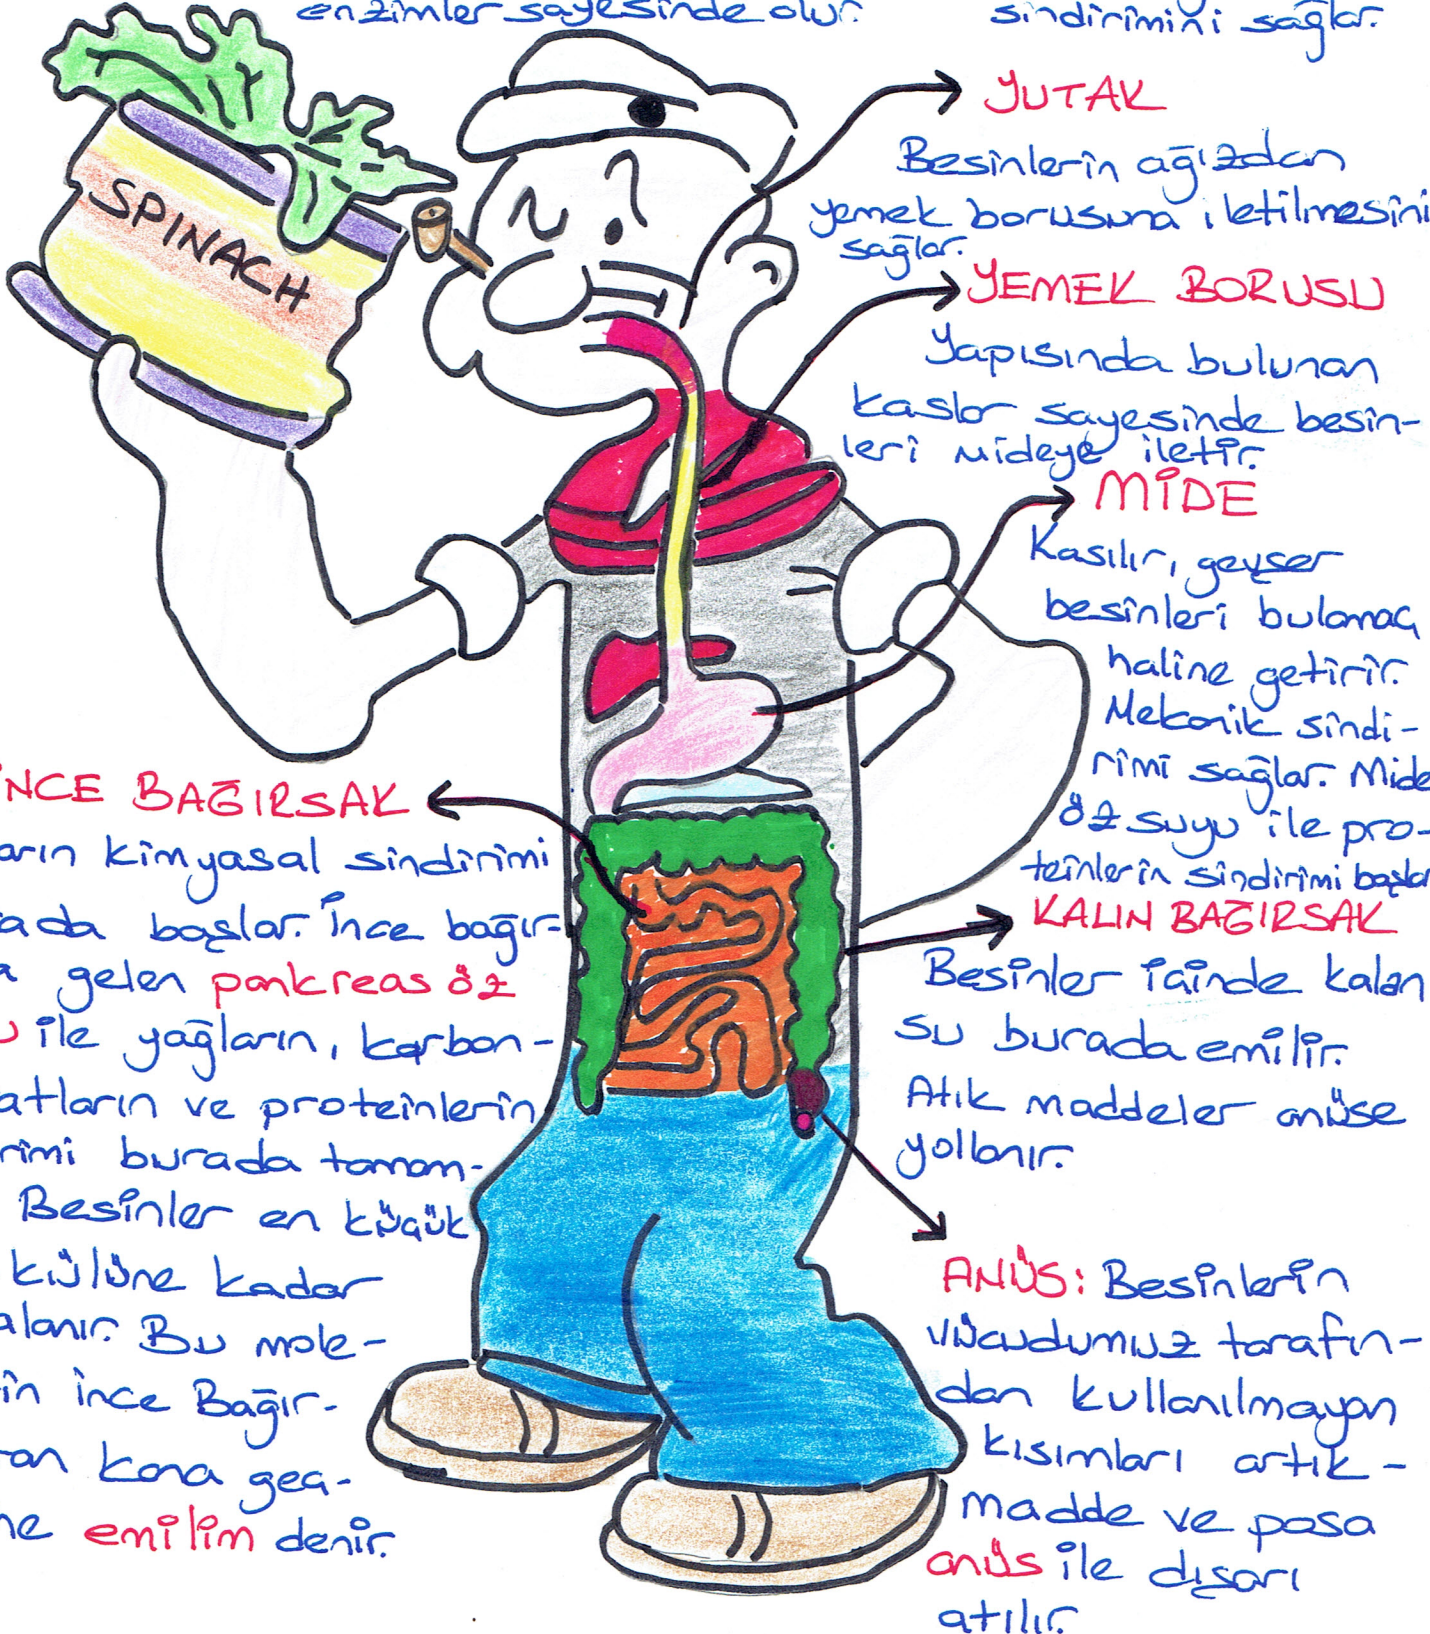 enzimler sayesinde olur.
sindirimini sağlar.
SPINACH
YUTAK
Besinlerin ağızdan
yemek borusuna iletilmesini
sağlar.
YEMEK BORUSU
Yapısında bulunan
kaslar sayesinde besin-
leri mideye iletir.
MİDE
Kasılır, gevşer
besinleri bulamaç
haline getirir.
Mekanik sindi-
rimi sağlar. Mide
öz suyu ile pro-
teinlerin sindirimi başlar
KALIN BAĞIRSAK
Besinler içinde kalan
su burada emilir.
Atık maddeler anüse
yollanır.
ANÜS: Besinlerin
vücudumuz tarafın-
dan kullanılmayan
kısımları artık-
madde ve posa
anüs ile dışarı
atılır.
İNCE BAĞIRSAK
arın kimyasal sindirimi
ada başlar. İnce bağır-
a gelen pankreas öz
u ile yağların, karbon-
atların ve proteinlerin
rimi burada tamam-
Besinler en küçük
külüne kadar
alanır. Bu mole-
in ince Bağır-
tan kana geç-
ne emilim denir.